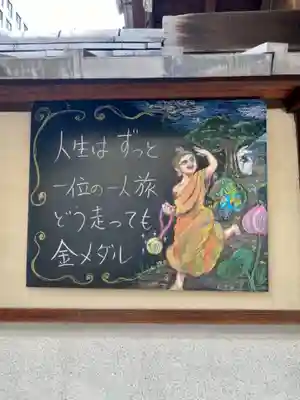 人生は ずっと
一位の一人旅
どう走っても
金メダル